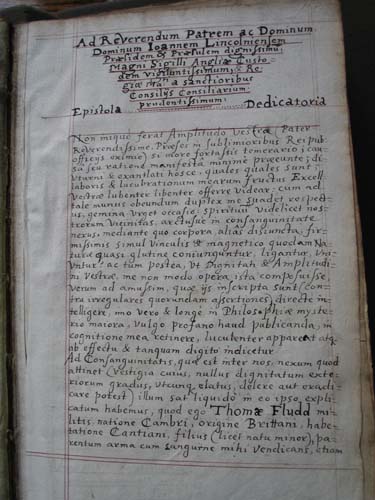 Ad Reverendum Patrem ac Dominum
Dominum Ioannem Lincolniensem
Præsidem & Præsulem dignissimu,
Magni Sigilli Angliæ Custo=
dem vigilantissimum, & Re=
giæ Ma.tis a sanctioribus
Consilijs Consiliarium
prudentissimum.
Epistola Dedicatoria
Non inique ferat Amplitudo Vestra (Pater
Reverendissime, Præses in sublimioribus Reipub:
officijs eximie) si more fortassis temerario, cau=
sa seu ratione manifesta minime præeunte; di=
uturni & exantlati hosce, quales quales sunt,
laboris & lucubrationum mearum fructus Excell:
Vestræ lubenter libenter offerre videar: cum ad
tale munus obeundum duplex me suadet respect=
us, gemina urget occasio: spirituu videlicet nos=
trorum vicinitas, arctusque in consanguinitate
nexus, mediante quo corpora, alias disiuncta, fir=
missimis simul vinculis & magnetico quodam Na
turæ quasi glutine coniunguntur, ligantur, Uni=
untur: ac tum postea, ut Dignitati & Amplitudi
ni Vestræ, me non modo opera ista composuisse,
verum ad amussim, quæ ijs inscripta sunt (con=
tra irregulares quorundam assertiones) directe in
telligere, imo vero & longe in Philosophiæ myste=
rio maiora, vulgo profano haud publicanda, in
cognitione mea retinere, luculenter appareat atq
ab effectu & tanquam digito indicetur
Ad Consanguinitatis, quæ est inter nos, nexum quod
attinet (vestigia cuius, nullus dignitatum exte=
riorum gradus, utcunq elatus, delere aut eradi=
care potest) illum sat liquido in eo ipso expli=
catum habemus, quod ego Thomæ Fludd mi=
litis, natione Cambri, origine Brittani, habi=
tatione Cantiani, filius (licet natu minor), pa=
rentum arma cum sanguine mihi vendicans, etiam